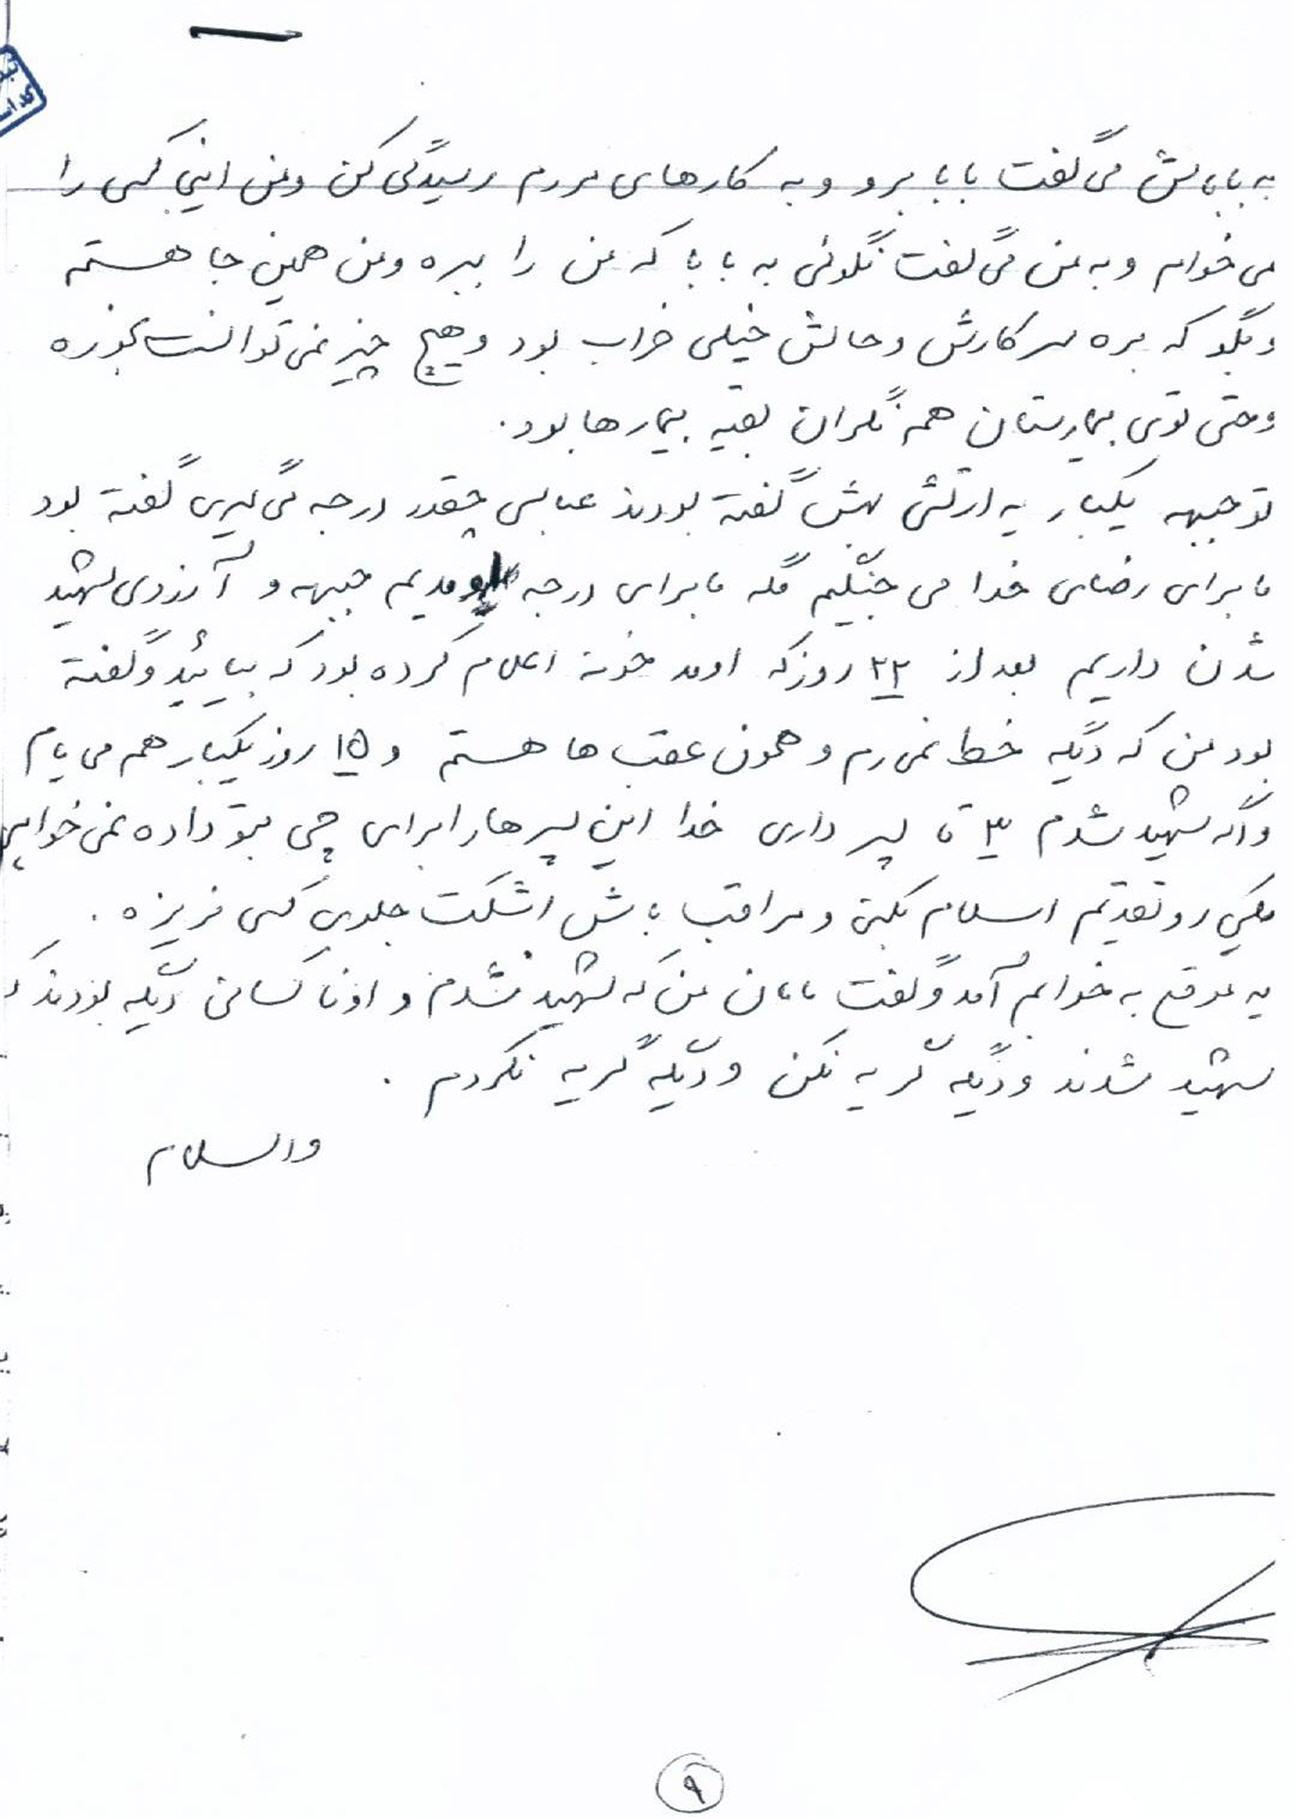 به باباش می گفت بابا برو و به کارهای مردم رسیدگی کن و من اینجا کسی را
می خوام و به من می گفت نگوئی به بابا که من را ببره و من همین جا هستم
و بگو که بره سر کارش و حالش خیلی خراب بود و هیچ چیز نمی توانست بخوره
و حتی توی بیمارستان هم نگران بقیه بیمارها بود.
تو جبهه یکبار یه ارتشی بهش گفته بودند عباسی چقدر درجه می گیری گفته بود
ما برای رضای خدا می جنگیم مگه ما برای درجه اومدیم جبهه و آرزوی شهید
شدن داریم بعد از ۲۲ روز که اومد خونه اعلام کرده بود که بیائید و گفته
بود من که دیگه خط نمی رم و همون عقب ها هستم و ۱۵ روز یکبار هم می یام
و اگه شهید شدم ۳ تا پسر داری خدا این پسرها را برای چی بتو داده نمی خواهی
یکی رو تقدیم اسلام بکنی و مراقب باش اشکت جلوی کسی نریزه .
یه موقع به خوابم آمد و گفت مامان من که شهید نشدم و اونا کسانی دیگه بودند که
شهید شدند و دیگه گریه نکن و دیگه گریه نکردم .
والسلام
۹